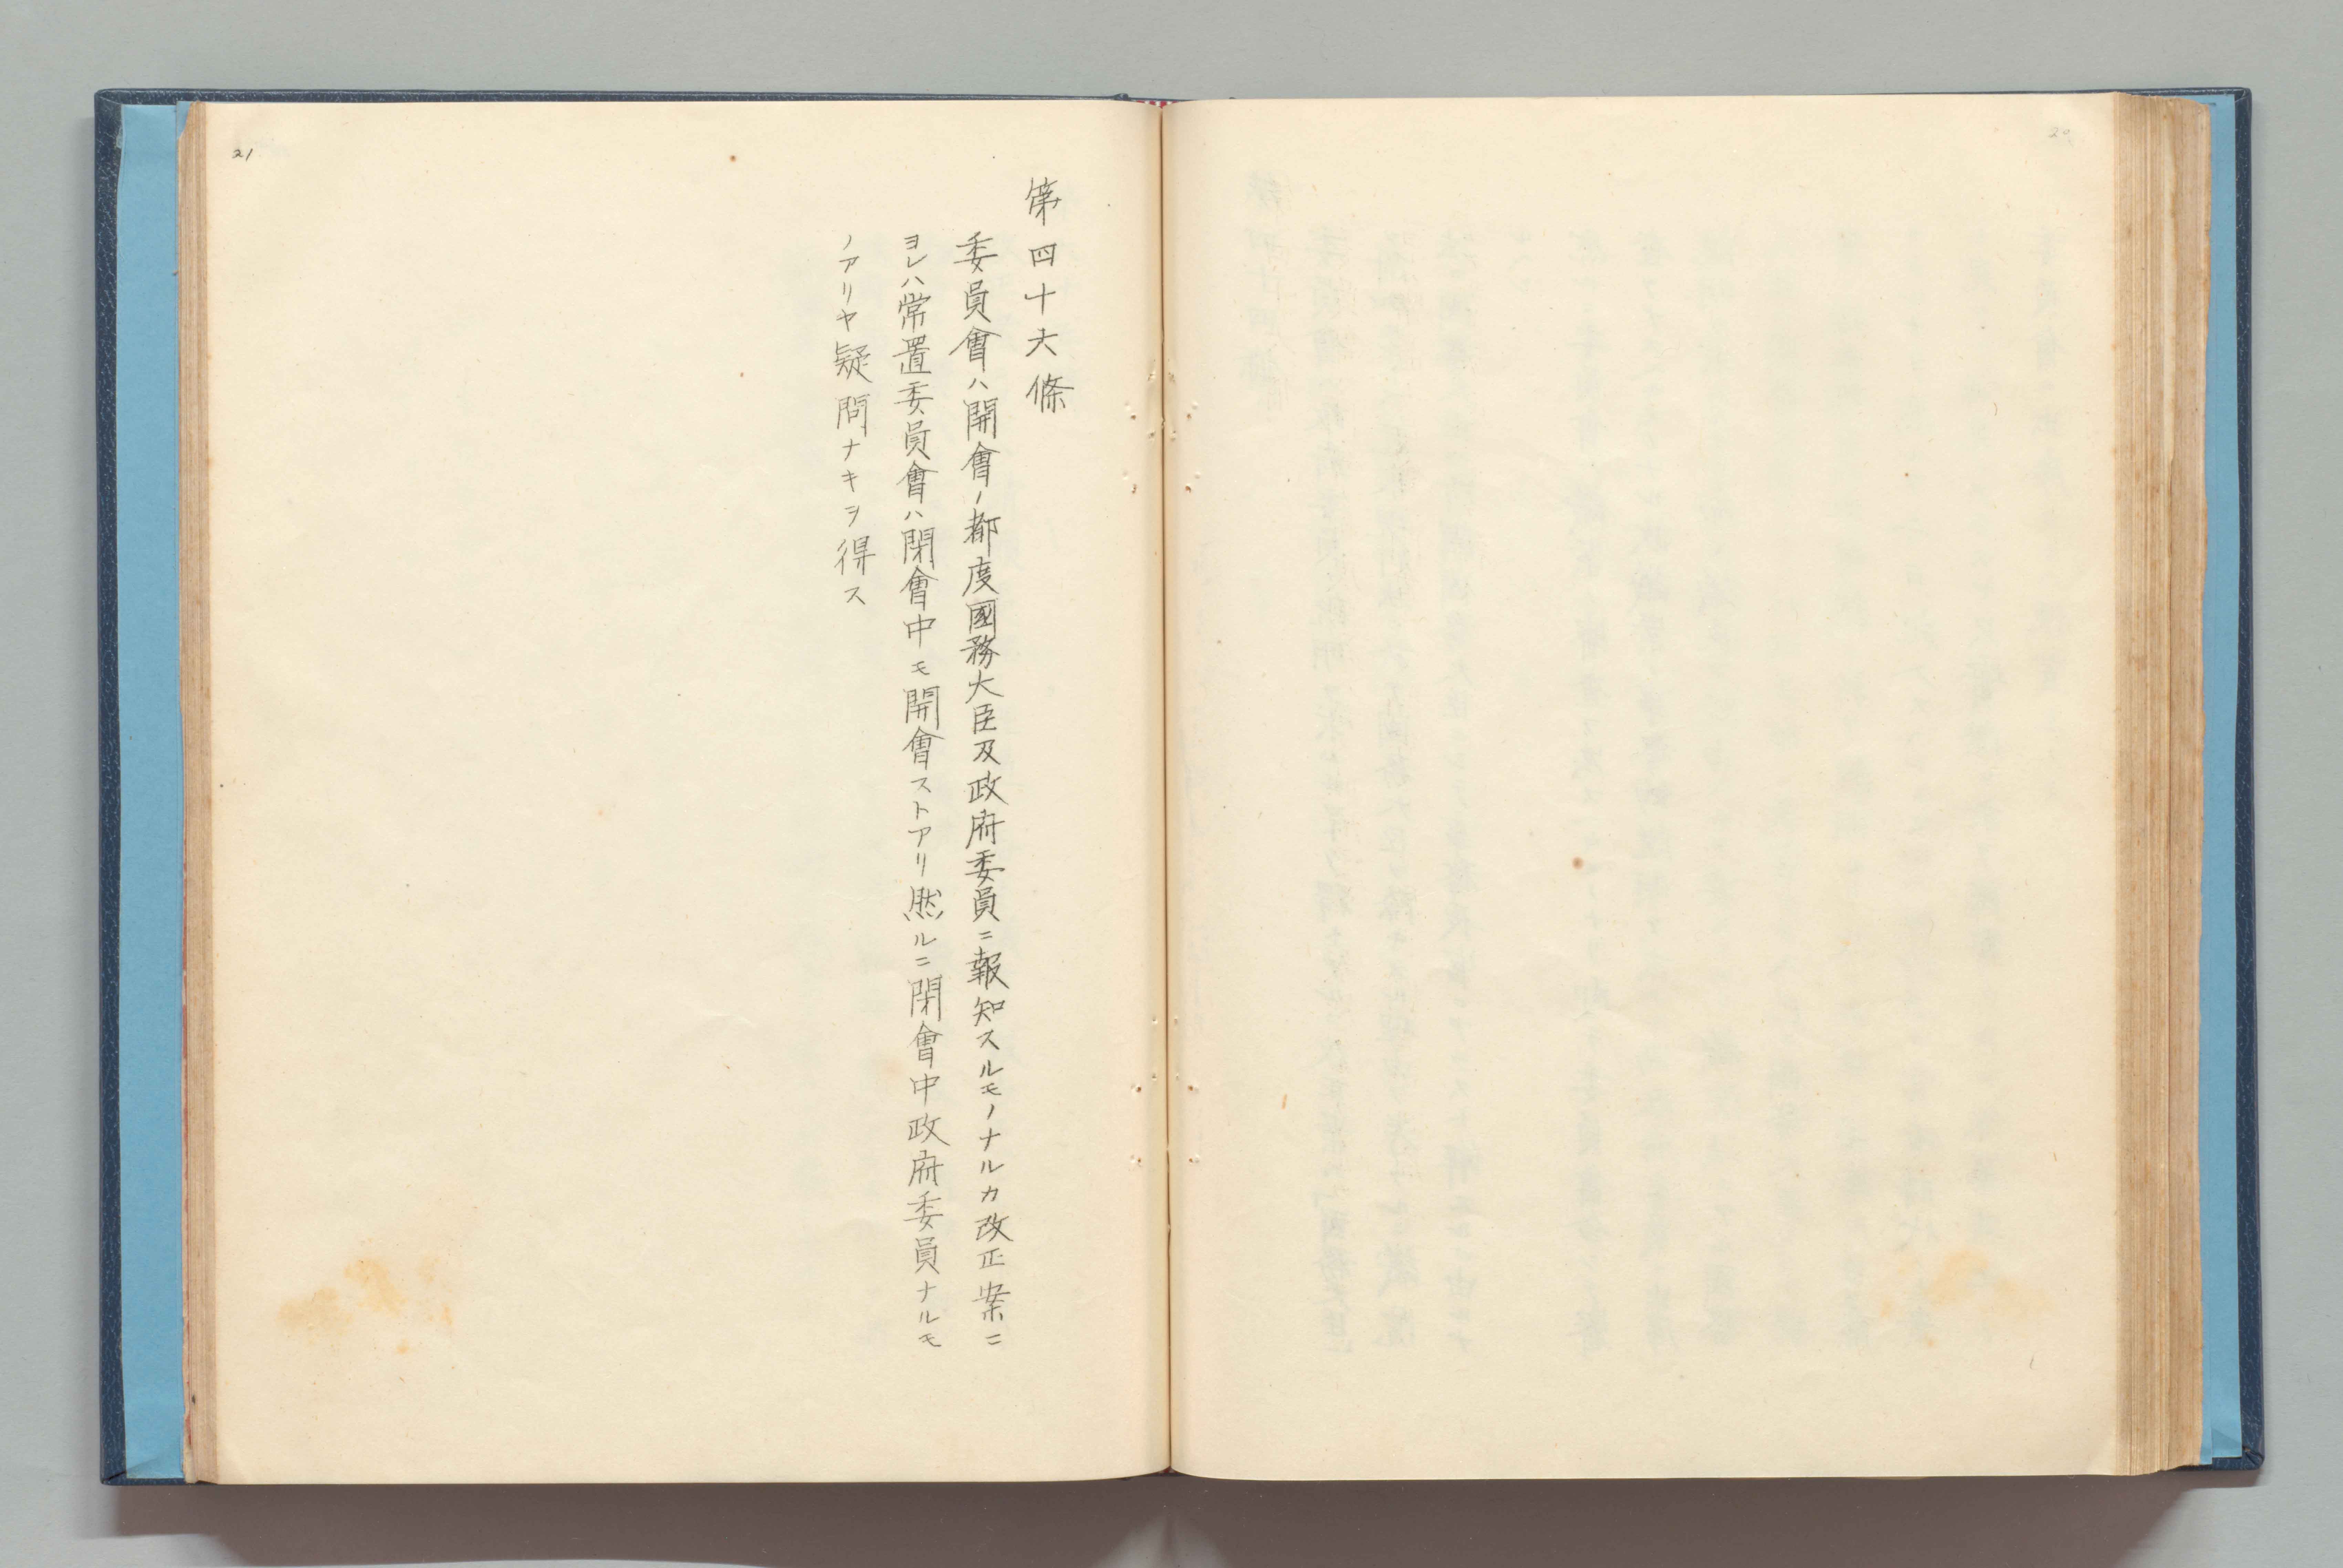 第四十六條
委員會ハ開會ノ都度國務大臣及政府委員ニ報知スルモノナルカ改正案ニ
ヨレハ常置委員會ハ閉會中モ開會ストアリ然ルニ閉會中政府委員ナルモ
ノアリヤ疑問ナキヲ得ス
21